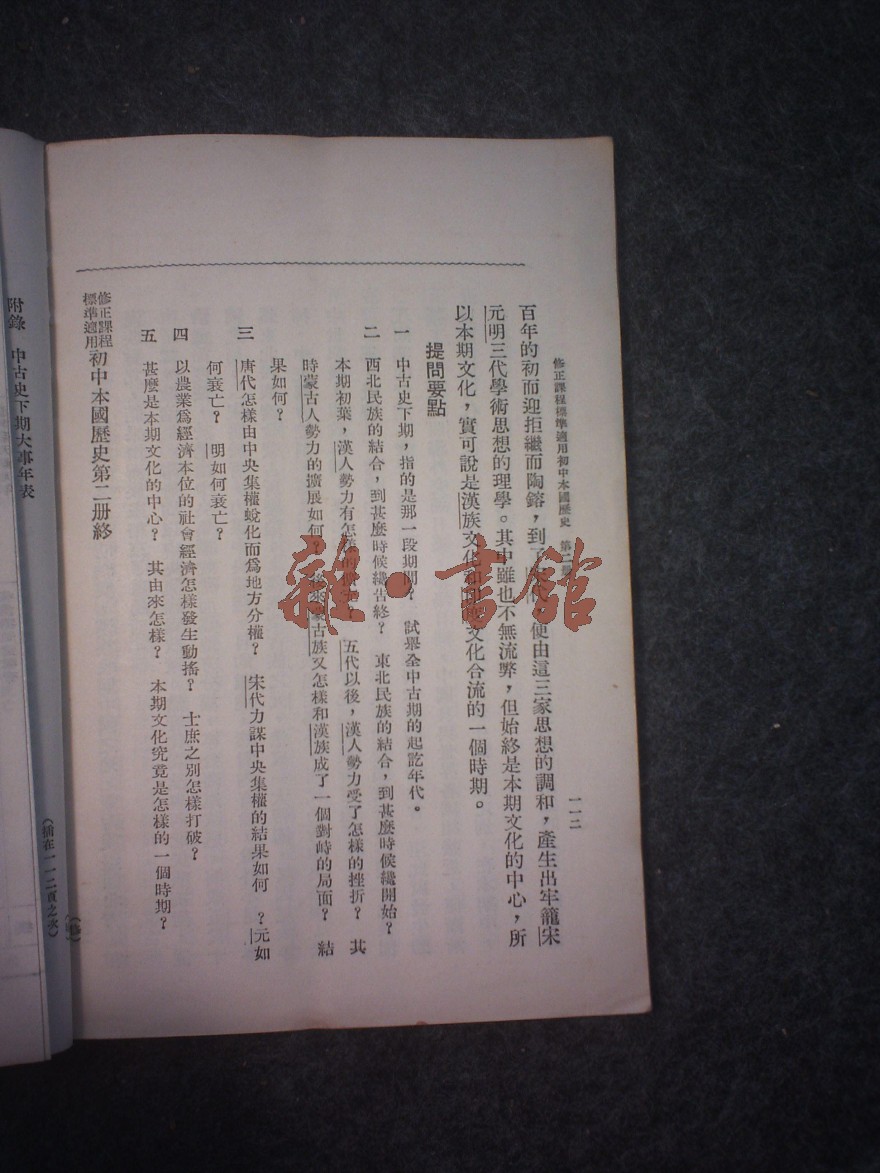 修正課程標準適用初中本國歷史 第二冊
一一二
百年的初而迎拒繼而陶鎔，到了 便由這三家思想的調和，產生出牢籠宋
元明三代學術思想的理學。其中雖也不無流弊，但始終是本期文化的中心，所
以本期文化，實可說是漢族文化和 文化合流的一個時期。
提問要點
一 中古史下期，指的是那一段期間？ 試舉全中古期的起訖年代。
二 西北民族的結合，到甚麼時候纔告終？ 東北民族的結合，到甚麼時候纔開始？
本期初葉，漢人勢力有怎樣的 五代以後，漢人勢力受了怎樣的挫折？ 其
時蒙古人勢力的擴展如何？ 後來蒙古族又怎樣和漢族成了一個對峙的局面？ 結
果如何？
三 唐代怎樣由中央集權蛻化而爲地方分權？ 宋代力謀中央集權的結果如何 ？元如
何衰亡？ 明如何衰亡？
四 以農業爲經濟本位的社會經濟怎樣發生動搖？ 士庶之別怎樣打破？
五 甚麼是本期文化的中心？ 其由來怎樣？ 本期文化究竟是怎樣的一個時期？
修正課程標準適用初中本國歷史第二册終
附錄 中古史下期大事年表
（插在一一二頁之次）
雜·書館